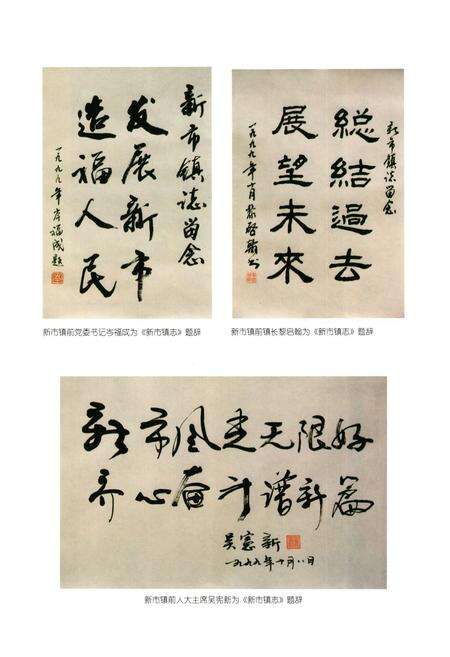 新市镇誌留念
发展新市
造福人民
一九九九年岑福成题
新市镇前党委书记岑福成为《新市镇志》题辞
新市镇誌留念
総結過去
展望未來
一九九九年十月黎啓翰书
新市镇前镇长黎启翰为《新市镇志》题辞
新市风光无限好
齐心奋斗谱新篇
吴憲新
一九九九年十月八日
新市镇前人大主席吴宪新为《新市镇志》题辞